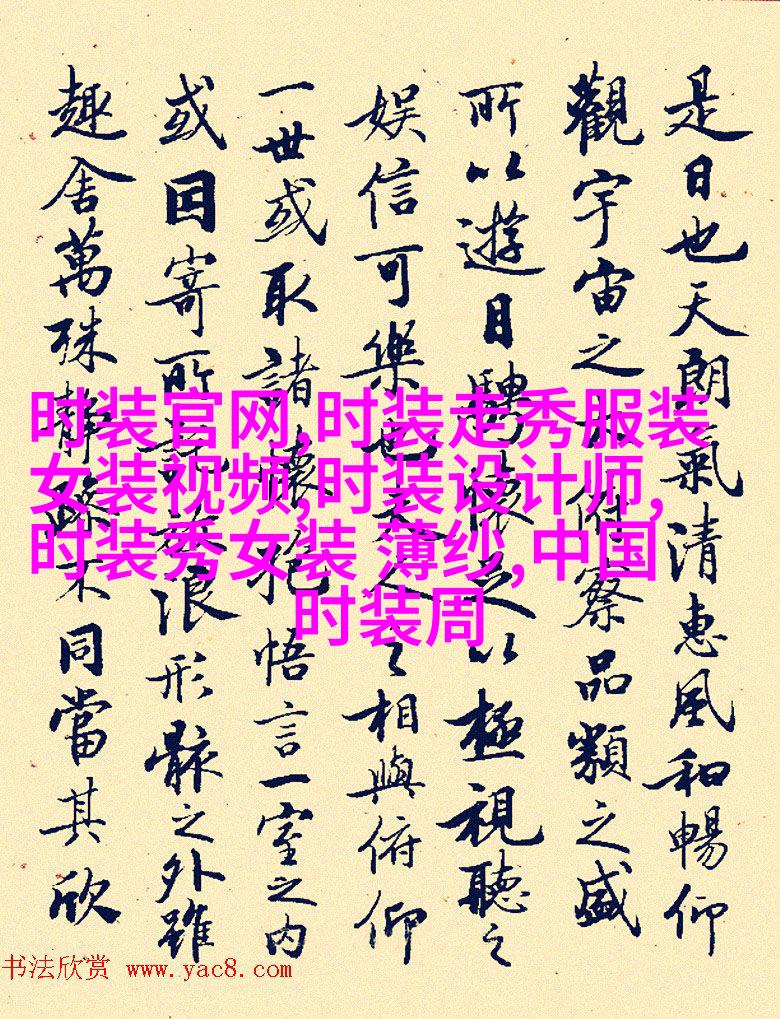 是日也天朗氣清惠風和暢仰
觀宇宙之大俯察品類之盛
所以遊目騁懷足以極視聽之
娱信可樂也夫人之相與俯仰
一世或取諸懷抱悟言一室之内
或因寄所託放浪形骸之外雖
趣舍萬殊靜躁不同當其欣
时装官网,时装走秀服装
女装视频,时装设计师,
时装秀女装 薄纱,中国
时装周
书法欣赏 www.yac8.com